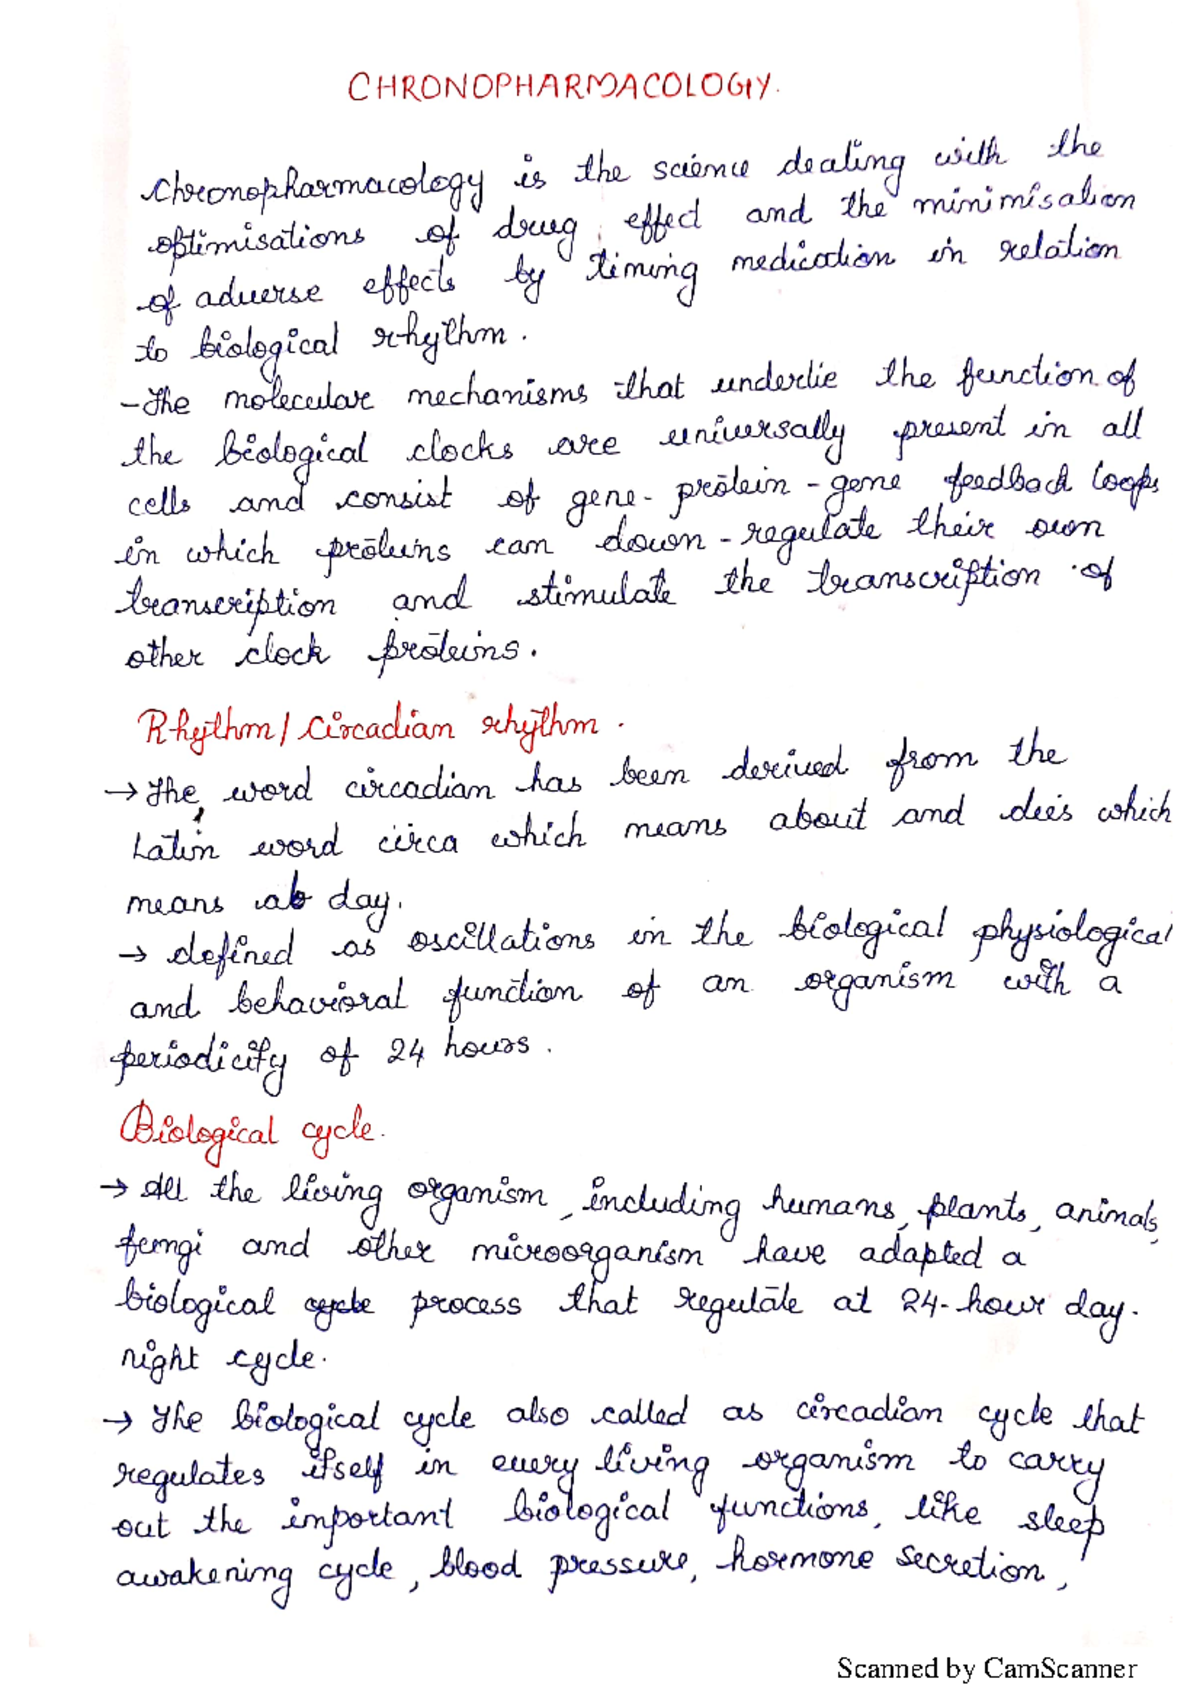 CHRONOPHARMACOLOGY.
Chronopharmacology is the science dealing with the
optimisations of drug effect and the minimisation
of adverse effects by timing medication in relation
to biological rhythm.
- The molecular mechanisms that underlie the function of
the biological clocks are universally present in all
cells and consist of gene - protein - gene feedback loops
in which proteins can down - regulate their own
transcription and stimulate the transcription of
other clock proteins.
Rhythm / Circadian rhythm.
→ The word circadian has been derived from the
Latin word circa which means about and dies which
means ab day.
→ defined as oscillations in the biological physiological
and behavioral function of an organism with a
periodicity of 24 hours.
Biological cycle.
→ All the living organism, including humans, plants, animals,
fungi and other microorganism have adapted a
biological cycle process that regulate at 24-hour day-
night cycle.
→ The biological cycle also called as circadian cycle that
regulates itself in every living organism to carry
out the important biological functions, like sleep
awakening cycle, blood pressure, hormone secretion,
Scanned by CamScanner